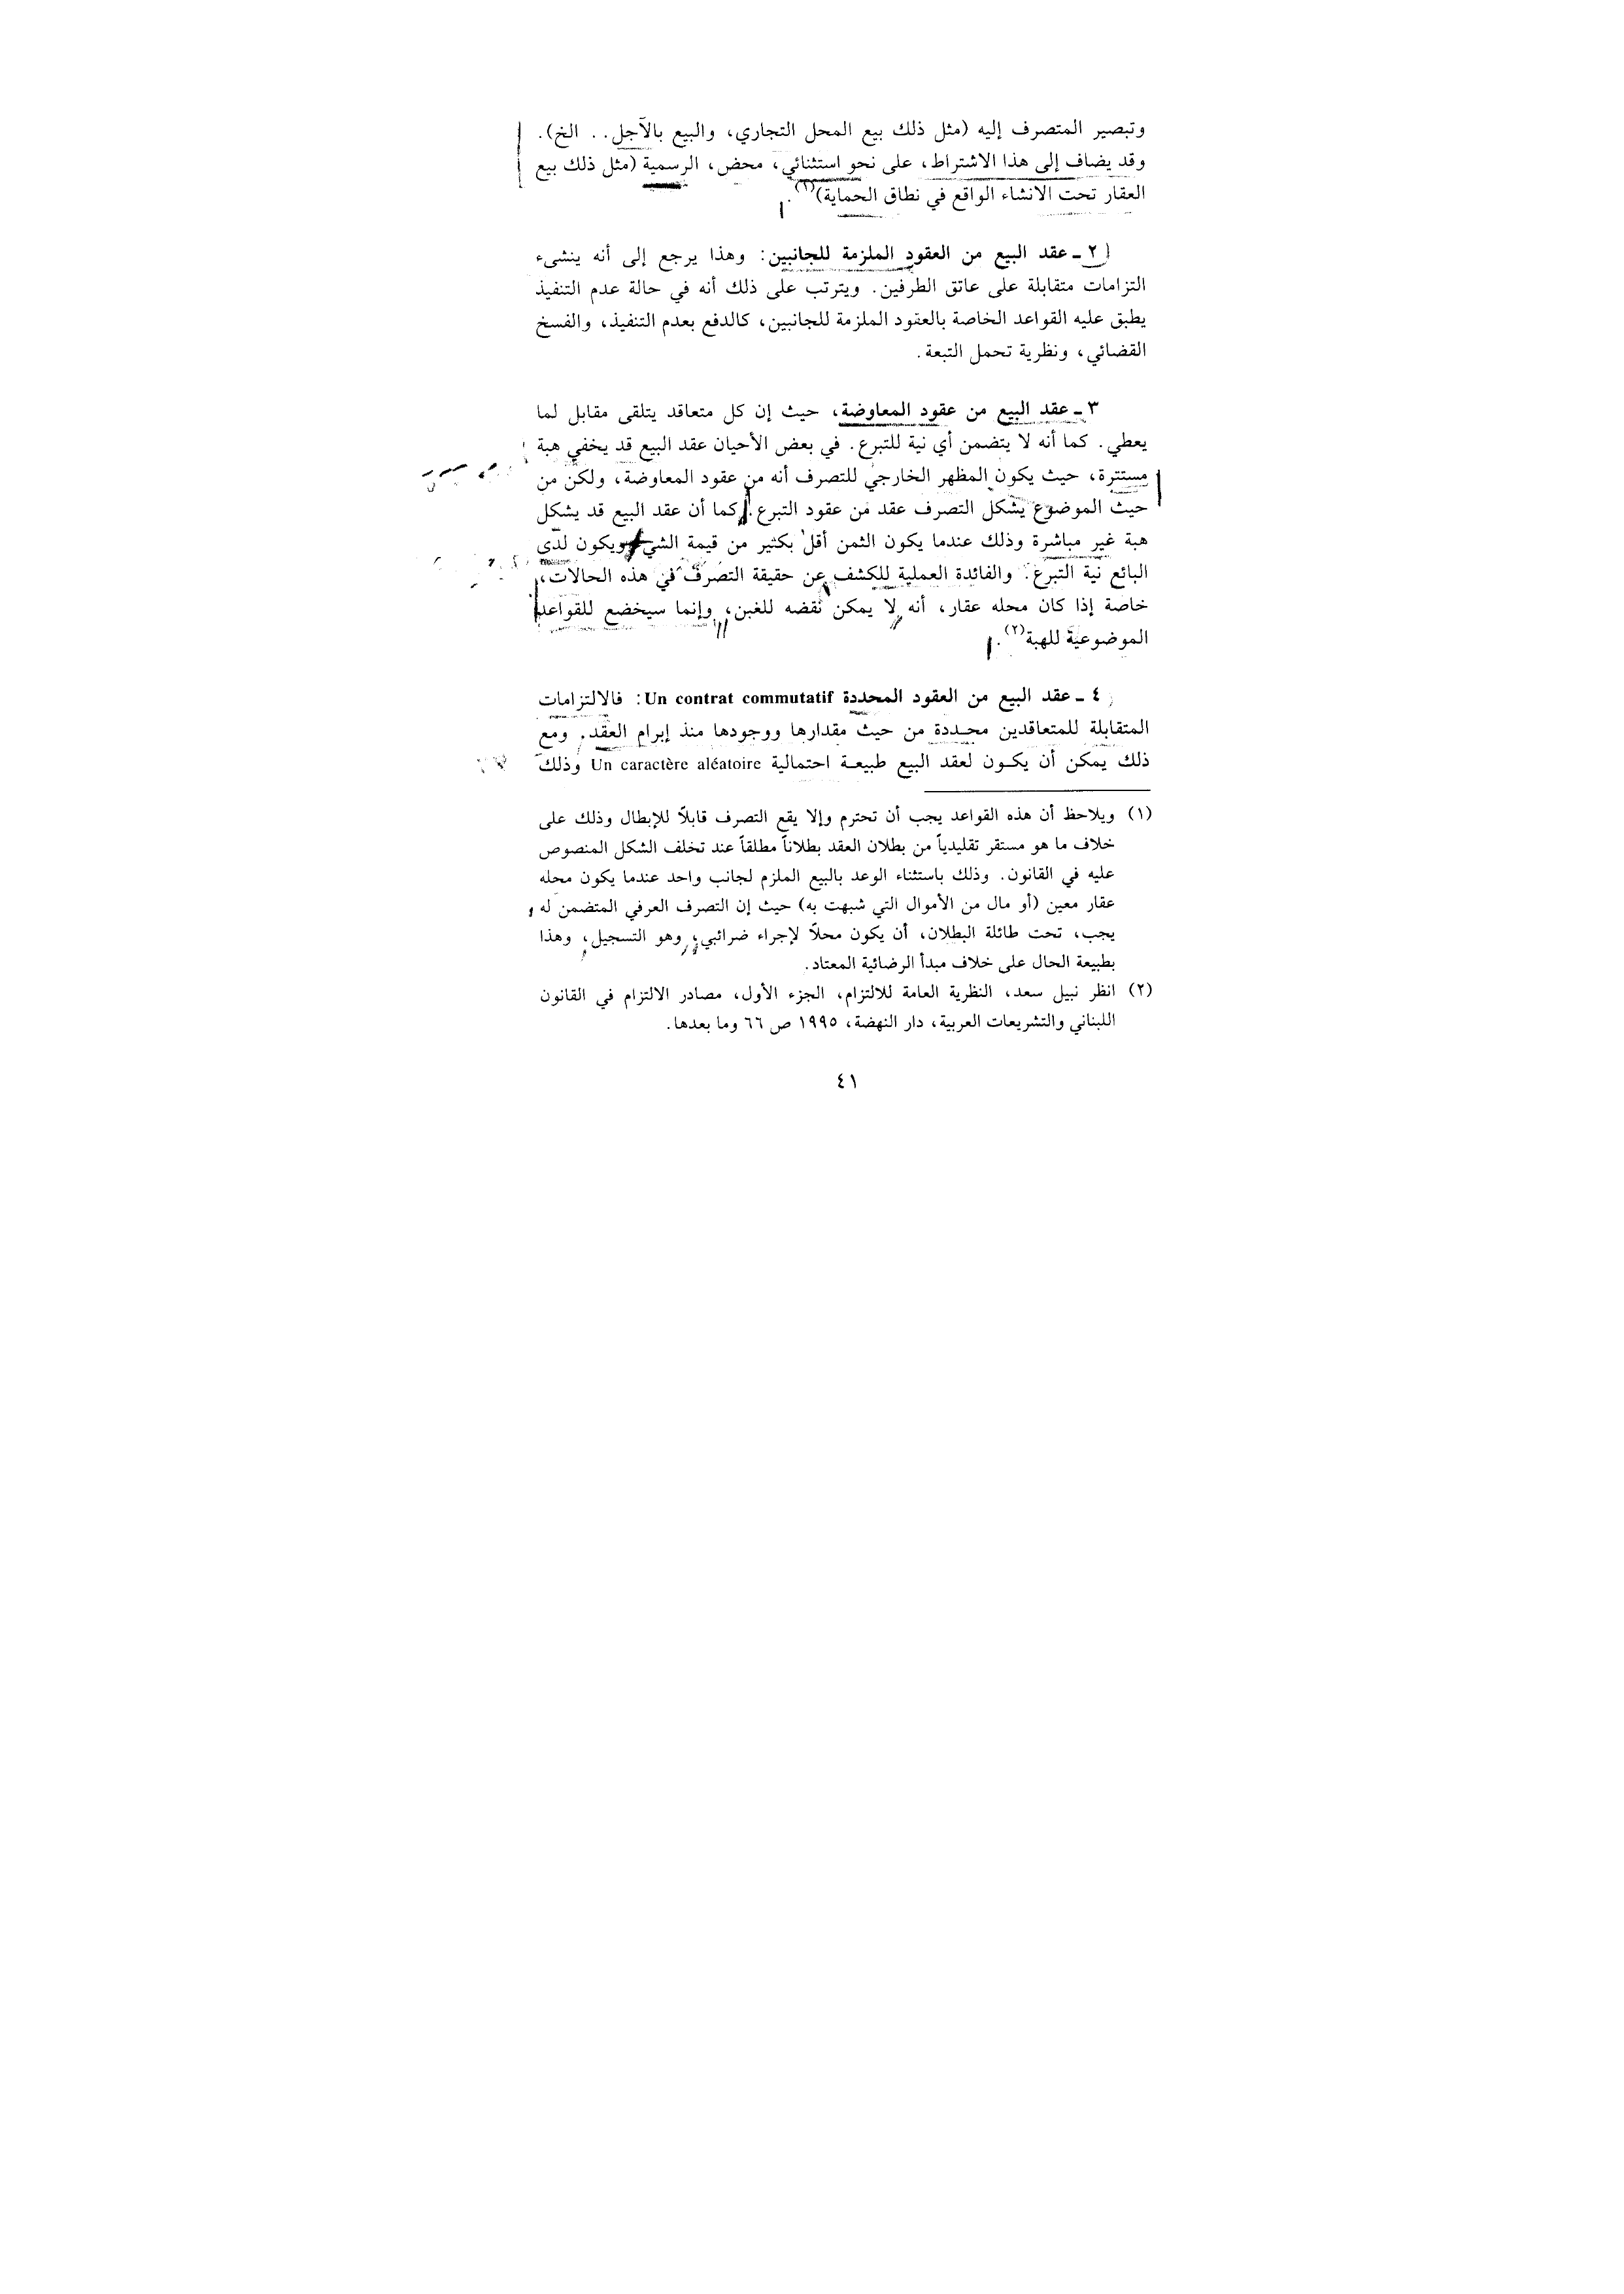 وتبصير المتصرف إليه (مثل ذلك بيع المحل التجاري، والبيع بالآجل.. الخ).
وقد يضاف إلى هذا الاشتراط، على نحو استثنائي، محض، الرسمية (مثل ذلك بيع
العقار تحت الانشاء الواقع في نطاق الحماية)(١).
٢ ـ عقد البيع من العقود الملزمة للجانبين: وهذا يرجع إلى أنه ينشىء
التزامات متقابلة على عاتق الطرفين. ويترتب على ذلك أنه في حالة عدم التنفيذ
يطبق عليه القواعد الخاصة بالعقود الملزمة للجانبين، كالدفع بعدم التنفيذ، والفسخ
القضائي، ونظرية تحمل التبعة.
٣ ـ عقد البيع من عقود المعاوضة، حيث إن كل متعاقد يتلقى مقابل لما
يعطي. كما أنه لا يتضمن أي نية للتبرع. في بعض الأحيان عقد البيع قد يخفي هبة
مستترة، حيث يكون المظهر الخارجي للتصرف أنه من عقود المعاوضة، ولكن من
حيث الموضوع يشكل التصرف عقد من عقود التبرع. كما أن عقد البيع قد يشكل
هبة غير مباشرة وذلك عندما يكون الثمن أقل بكثير من قيمة الشيء ويكون لدى
البائع نية التبرع. والفائدة العملية للكشف عن حقيقة التصرف في هذه الحالات،
خاصة إذا كان محله عقار، أنه لا يمكن نقضه للغبن، وإنما سيخضع للقواعد
الموضوعية للهبة(٢).
٤ ـ عقد البيع من العقود المحددة Un contrat commutatif: فالالتزامات
المتقابلة للمتعاقدين محددة من حيث مقدارها ووجودها منذ إبرام العقد. ومع
ذلك يمكن أن يكون لعقد البيع طبيعة احتمالية Un caractère aléatoire وذلك
(١) ويلاحظ أن هذه القواعد يجب أن تحترم وإلا يقع التصرف قابلاً للإبطال وذلك على
خلاف ما هو مستقر تقليدياً من بطلان العقد بطلاناً مطلقاً عند تخلف الشكل المنصوص
عليه في القانون. وذلك باستثناء الوعد بالبيع الملزم لجانب واحد عندما يكون محله
عقار معين (أو مال من الأموال التي شبهت به) حيث إن التصرف العرفي المتضمن له
يجب، تحت طائلة البطلان، أن يكون محلاً لإجراء ضرائبي، وهو التسجيل، وهذا
بطبيعة الحال على خلاف مبدأ الرضائية المعتاد.
(٢) انظر نبيل سعد، النظرية العامة للالتزام، الجزء الأول، مصادر الالتزام في القانون
اللبناني والتشريعات العربية، دار النهضة، ١٩٩٥ ص ٦٦ وما بعدها.
٤١